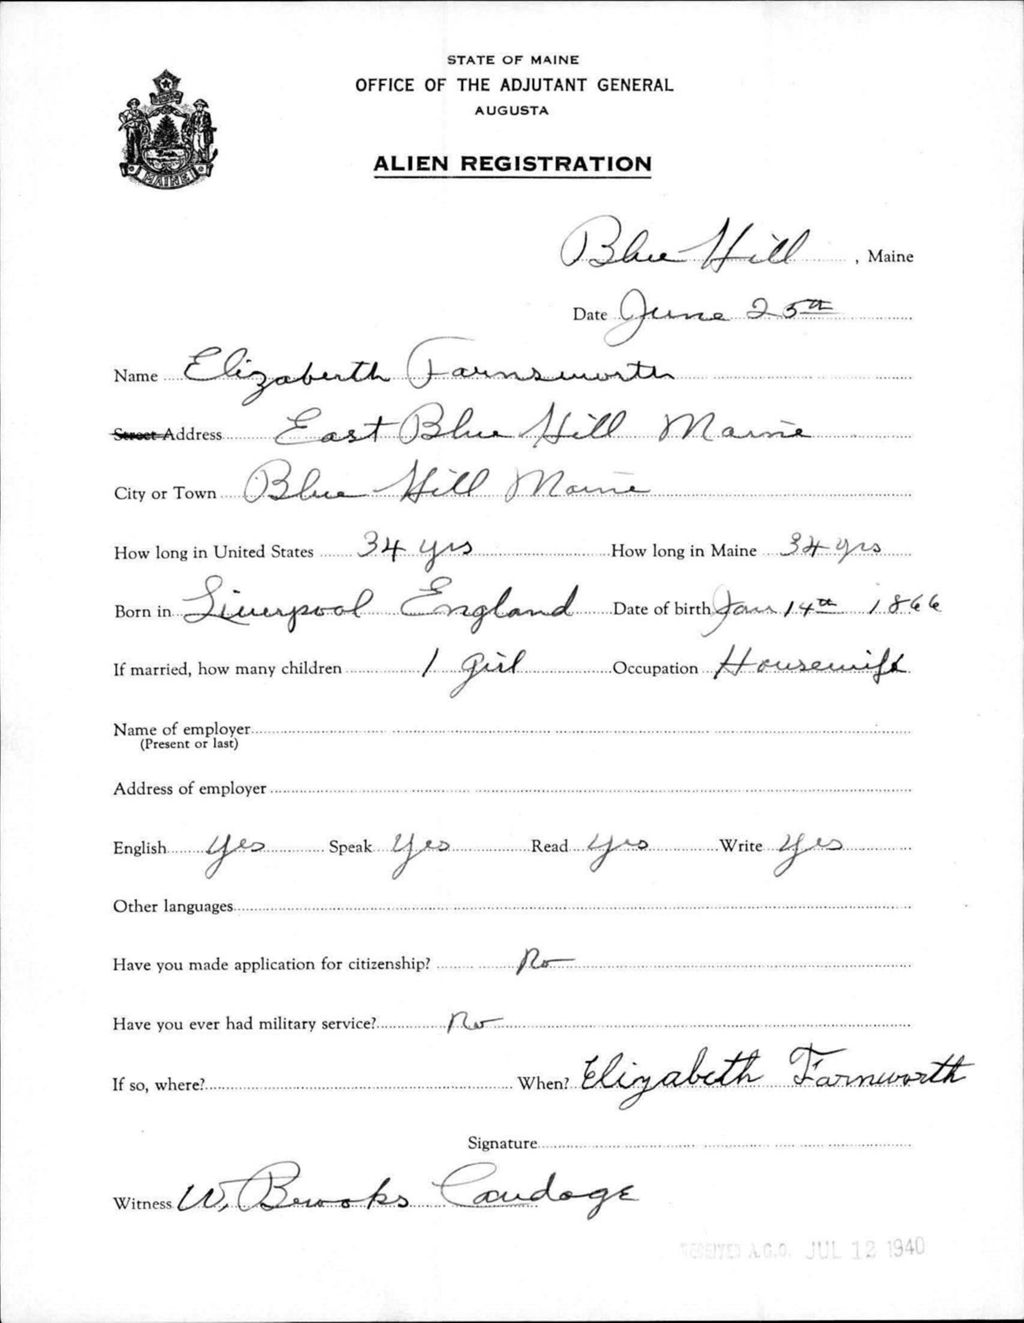 STATE OF MAINE
OFFICE OF THE ADJUTANT GENERAL
AUGUSTA
ALIEN REGISTRATION
MAINE
Blue Hill, Maine
Date June 25th
Name Elizaberth Farnsworth
Street Address East Blue Hill Maine
City or Town Blue Hill Maine
How long in United States 34 yrs How long in Maine 34 yrs
Born in Liverpool England Date of birth Jan 14th 1866
If married, how many children 1 girl Occupation Housewife
Name of employer
(Present or last)
Address of employer
English yes Speak yes Read yes Write yes
Other languages
Have you made application for citizenship? No
Have you ever had military service? No
If so, where? When? Elizabeth Farnworth
Signature
Witness W. Brooks Candage
RECEIVED A.G.O. JUL 12 1940